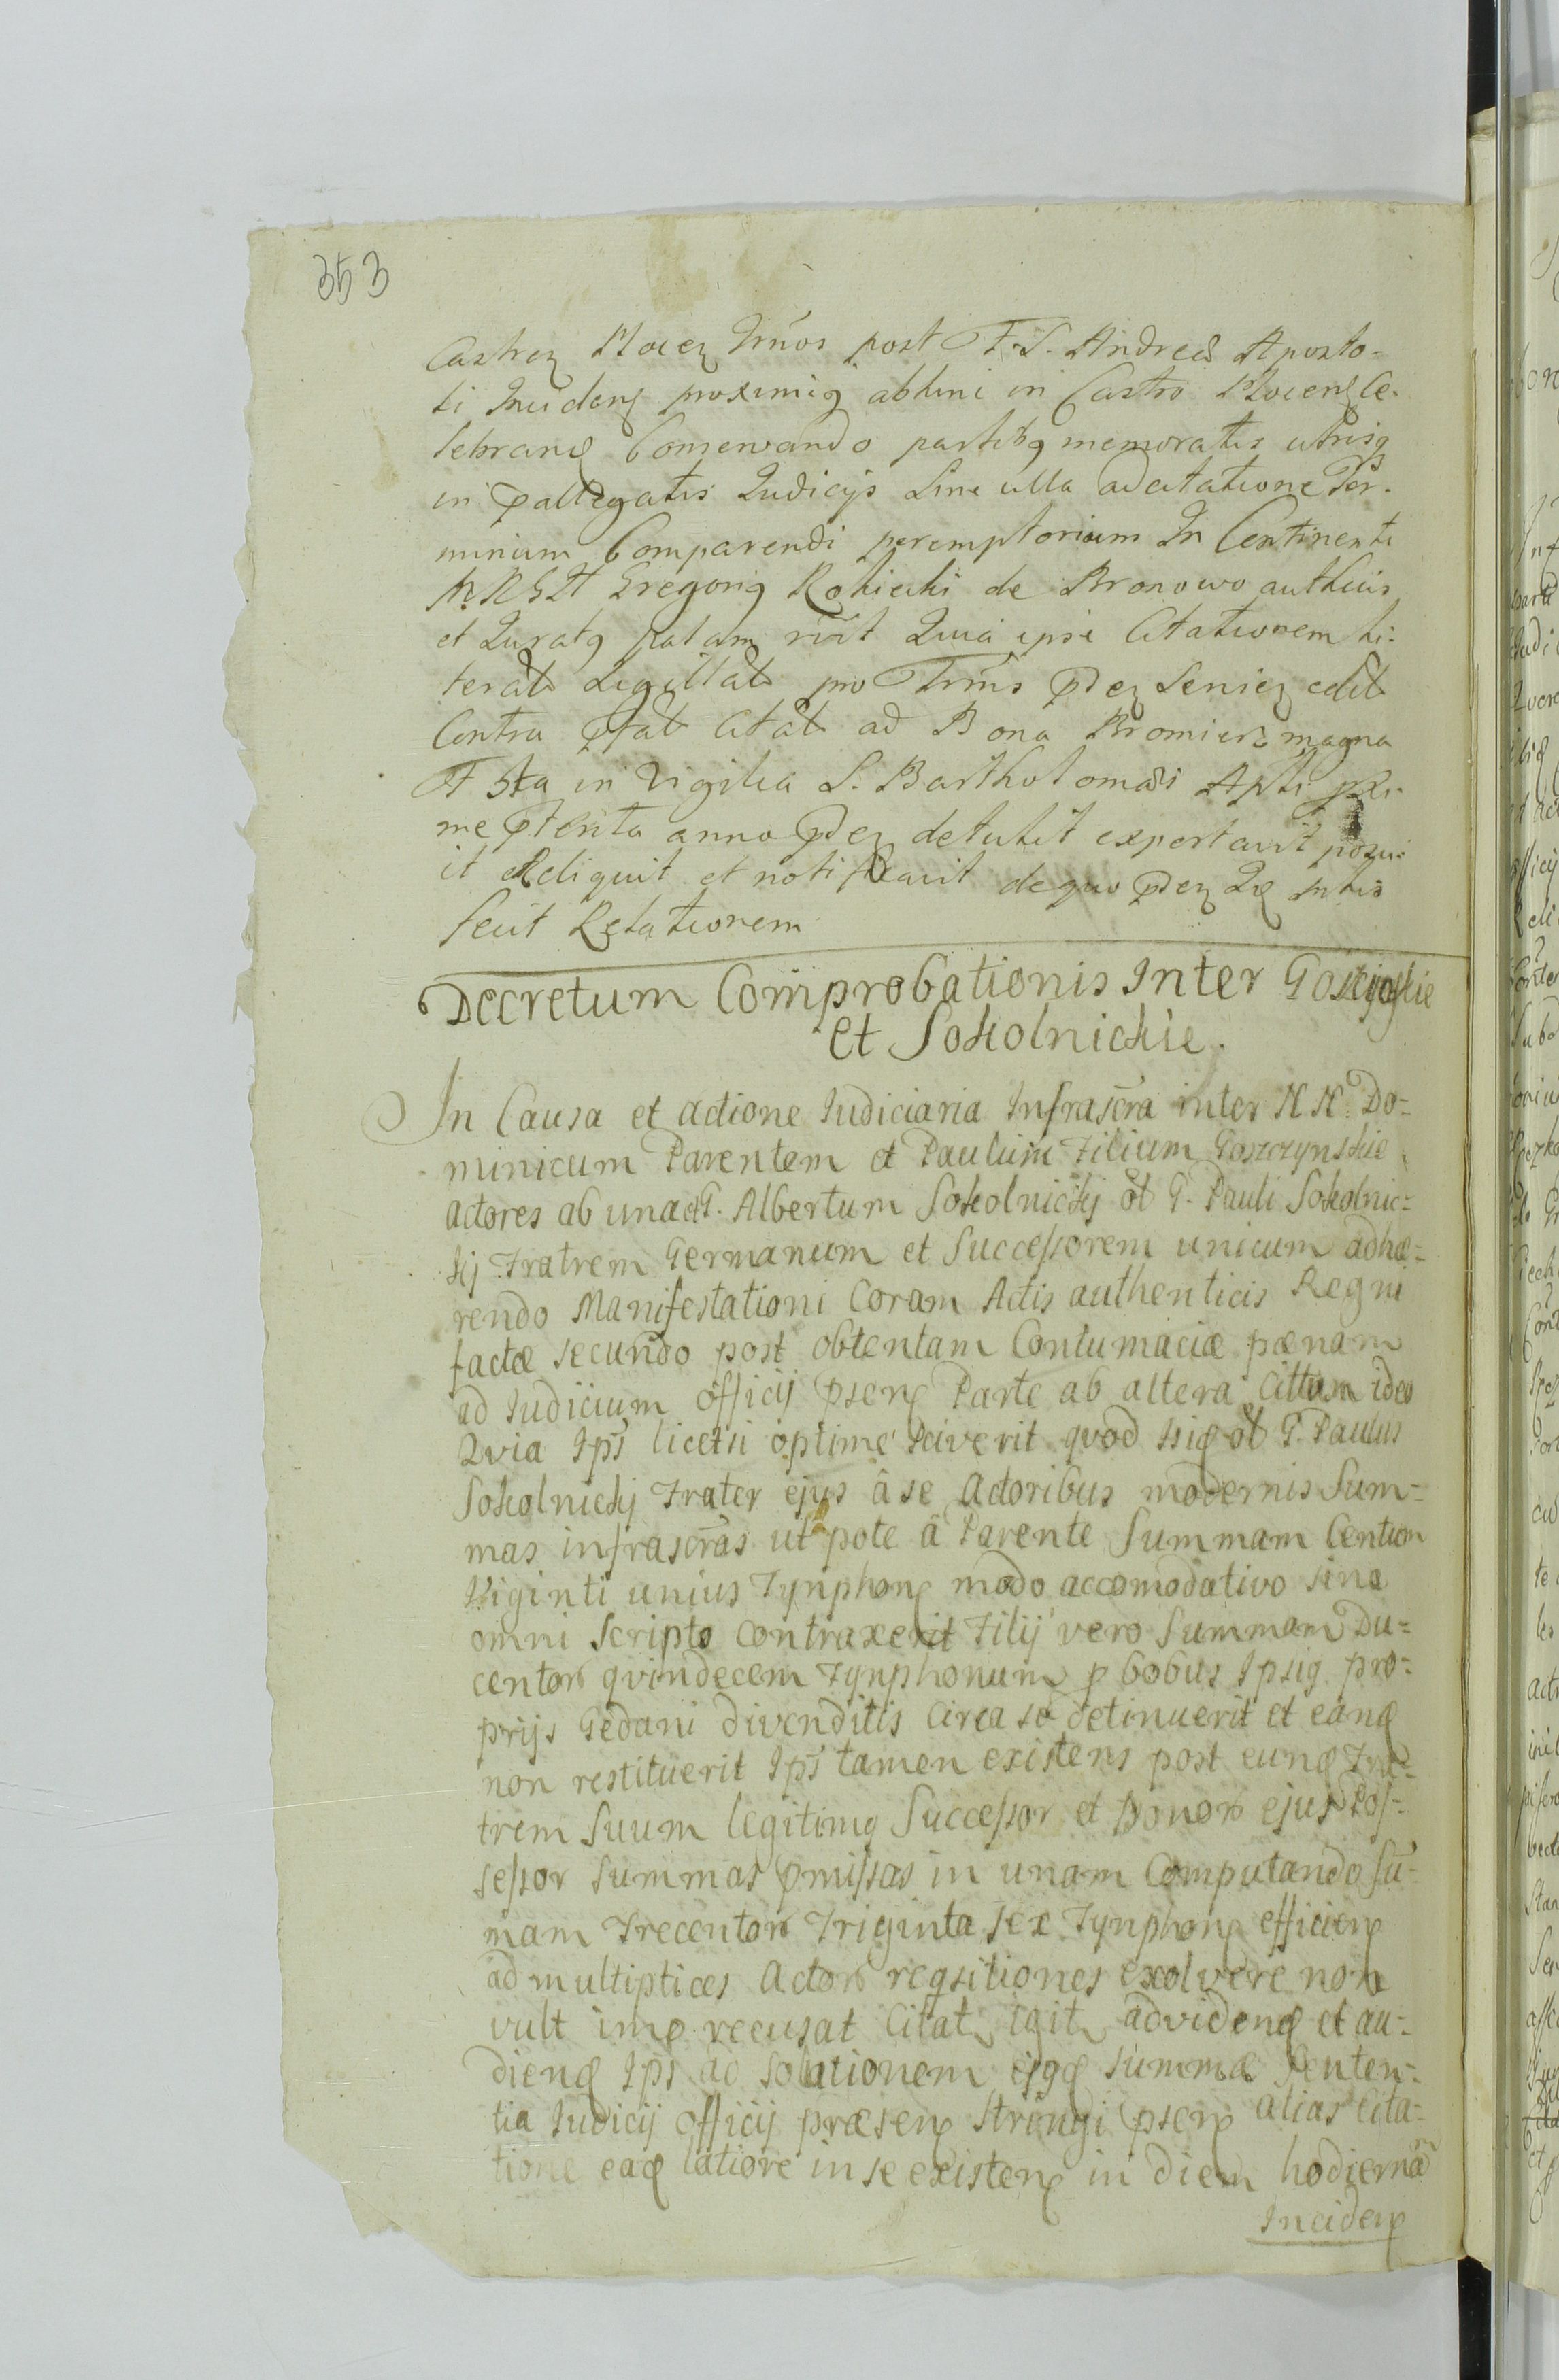 353
Castren Plocen Trmos post F. S. Andreæ Aposto-
li Inciden proximiq abhinc in Castro Plocen Ce-
lebrand Conservando partibq memoratis utrisq
in pallegatis Judicijs Sine ulla adcitatione Ter-
minum Comparendi peremptorium In Continenti
Gregoriq Rokicki de Bronowo
et Juratq palam rvit Quia ipse Citationem li-
terat Sigillat pro Trmis pden edit
Contra pfat Citat ad Bona Bromierz magna
F 3tia in Vigilia S. Bartholomæi Apli
me pterita anno pden detulit exportavit posu-
it Reliquit et notificavit de quo pden
fecit Relationem
Decretum Comprobationis Inter
et Sokolnickie.
In Causa et actione Judiciaria Infrascra inter N.N. Do-
minicum Parentem et Paulum Filium Goszczynskie
actores ab una et G. Albertum Sokolnickj ol G. Pauli Sokolnic-
kij Fratrem Germanum et Successorem unicum adhæ-
rendo Manifestationi Coram Actis authenticis Regni
factæ secundo post obtentam Contumaciæ pænam
ad Judicium officij psen Parte ab altera Cittum ideo
Qvia Ips licetsi optime sciverit qvod ol G. Paulus
Sokolnickj Frater ejus â se Actoribus modernis Sum-
mas infrascras ut pote â Parente Summam Centum
Viginti unius Tynphon modo accomodativo sine
omni Scripto contraxerit Filij vero Summam Du-
centor qvindecem Tynphonum p bobus Ipsiq pro-
prijs Gedani divenditis Circa se detinuerit et eand
non restituerit Ips tamen existens post eund Fra-
trem Suum legitimq Successor et bonor ejus Pos-
sessor Summas pmissas in unam Computando Su-
mam Trecentor Triginta sex Tynphon efficien
ad multiplices Actor reqsitiones exolvere non
vult imo recusat Citat igit ad videnđ et au-
diend Ips ad Solutionem ejqd Summæ Senten-
tia Judicij officij præsen Stringi psen alias Cita-
tione eađ latiore in se existen in diem hodiernã
Inciden